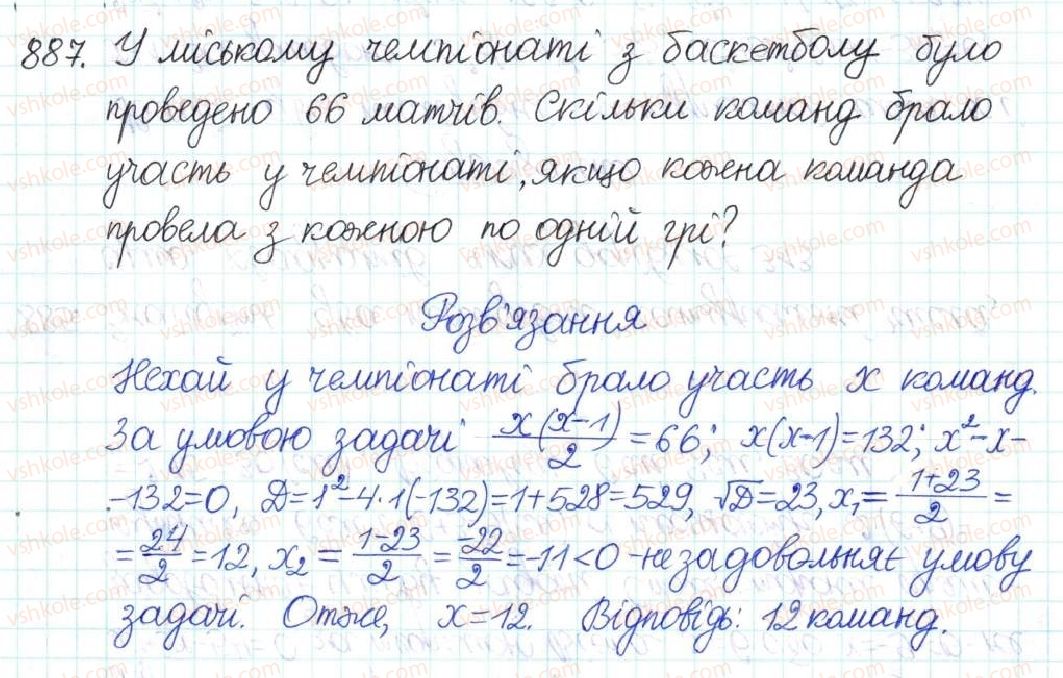 887. У міському чемпіонаті з баскетболу було
проведено 66 матчів. Скільки команд брало
участь у чемпіонаті, якщо кожна команда
провела з кожною по одній грі?
Розв'язання
Нехай у чемпіонаті брало участь x команд.
За умовою задачі x(x-1)/2 = 66; x(x-1)=132; x²-x-
-132=0, D=1²-4·1(-132)=1+528=529, √D=23, x₁= (1+23)/2 =
= 24/2 =12, x₂= (1-23)/2 = -22/2 =-11<0 - не задовольняє умову
задачі. Отже, x=12. Відповідь: 12 команд.